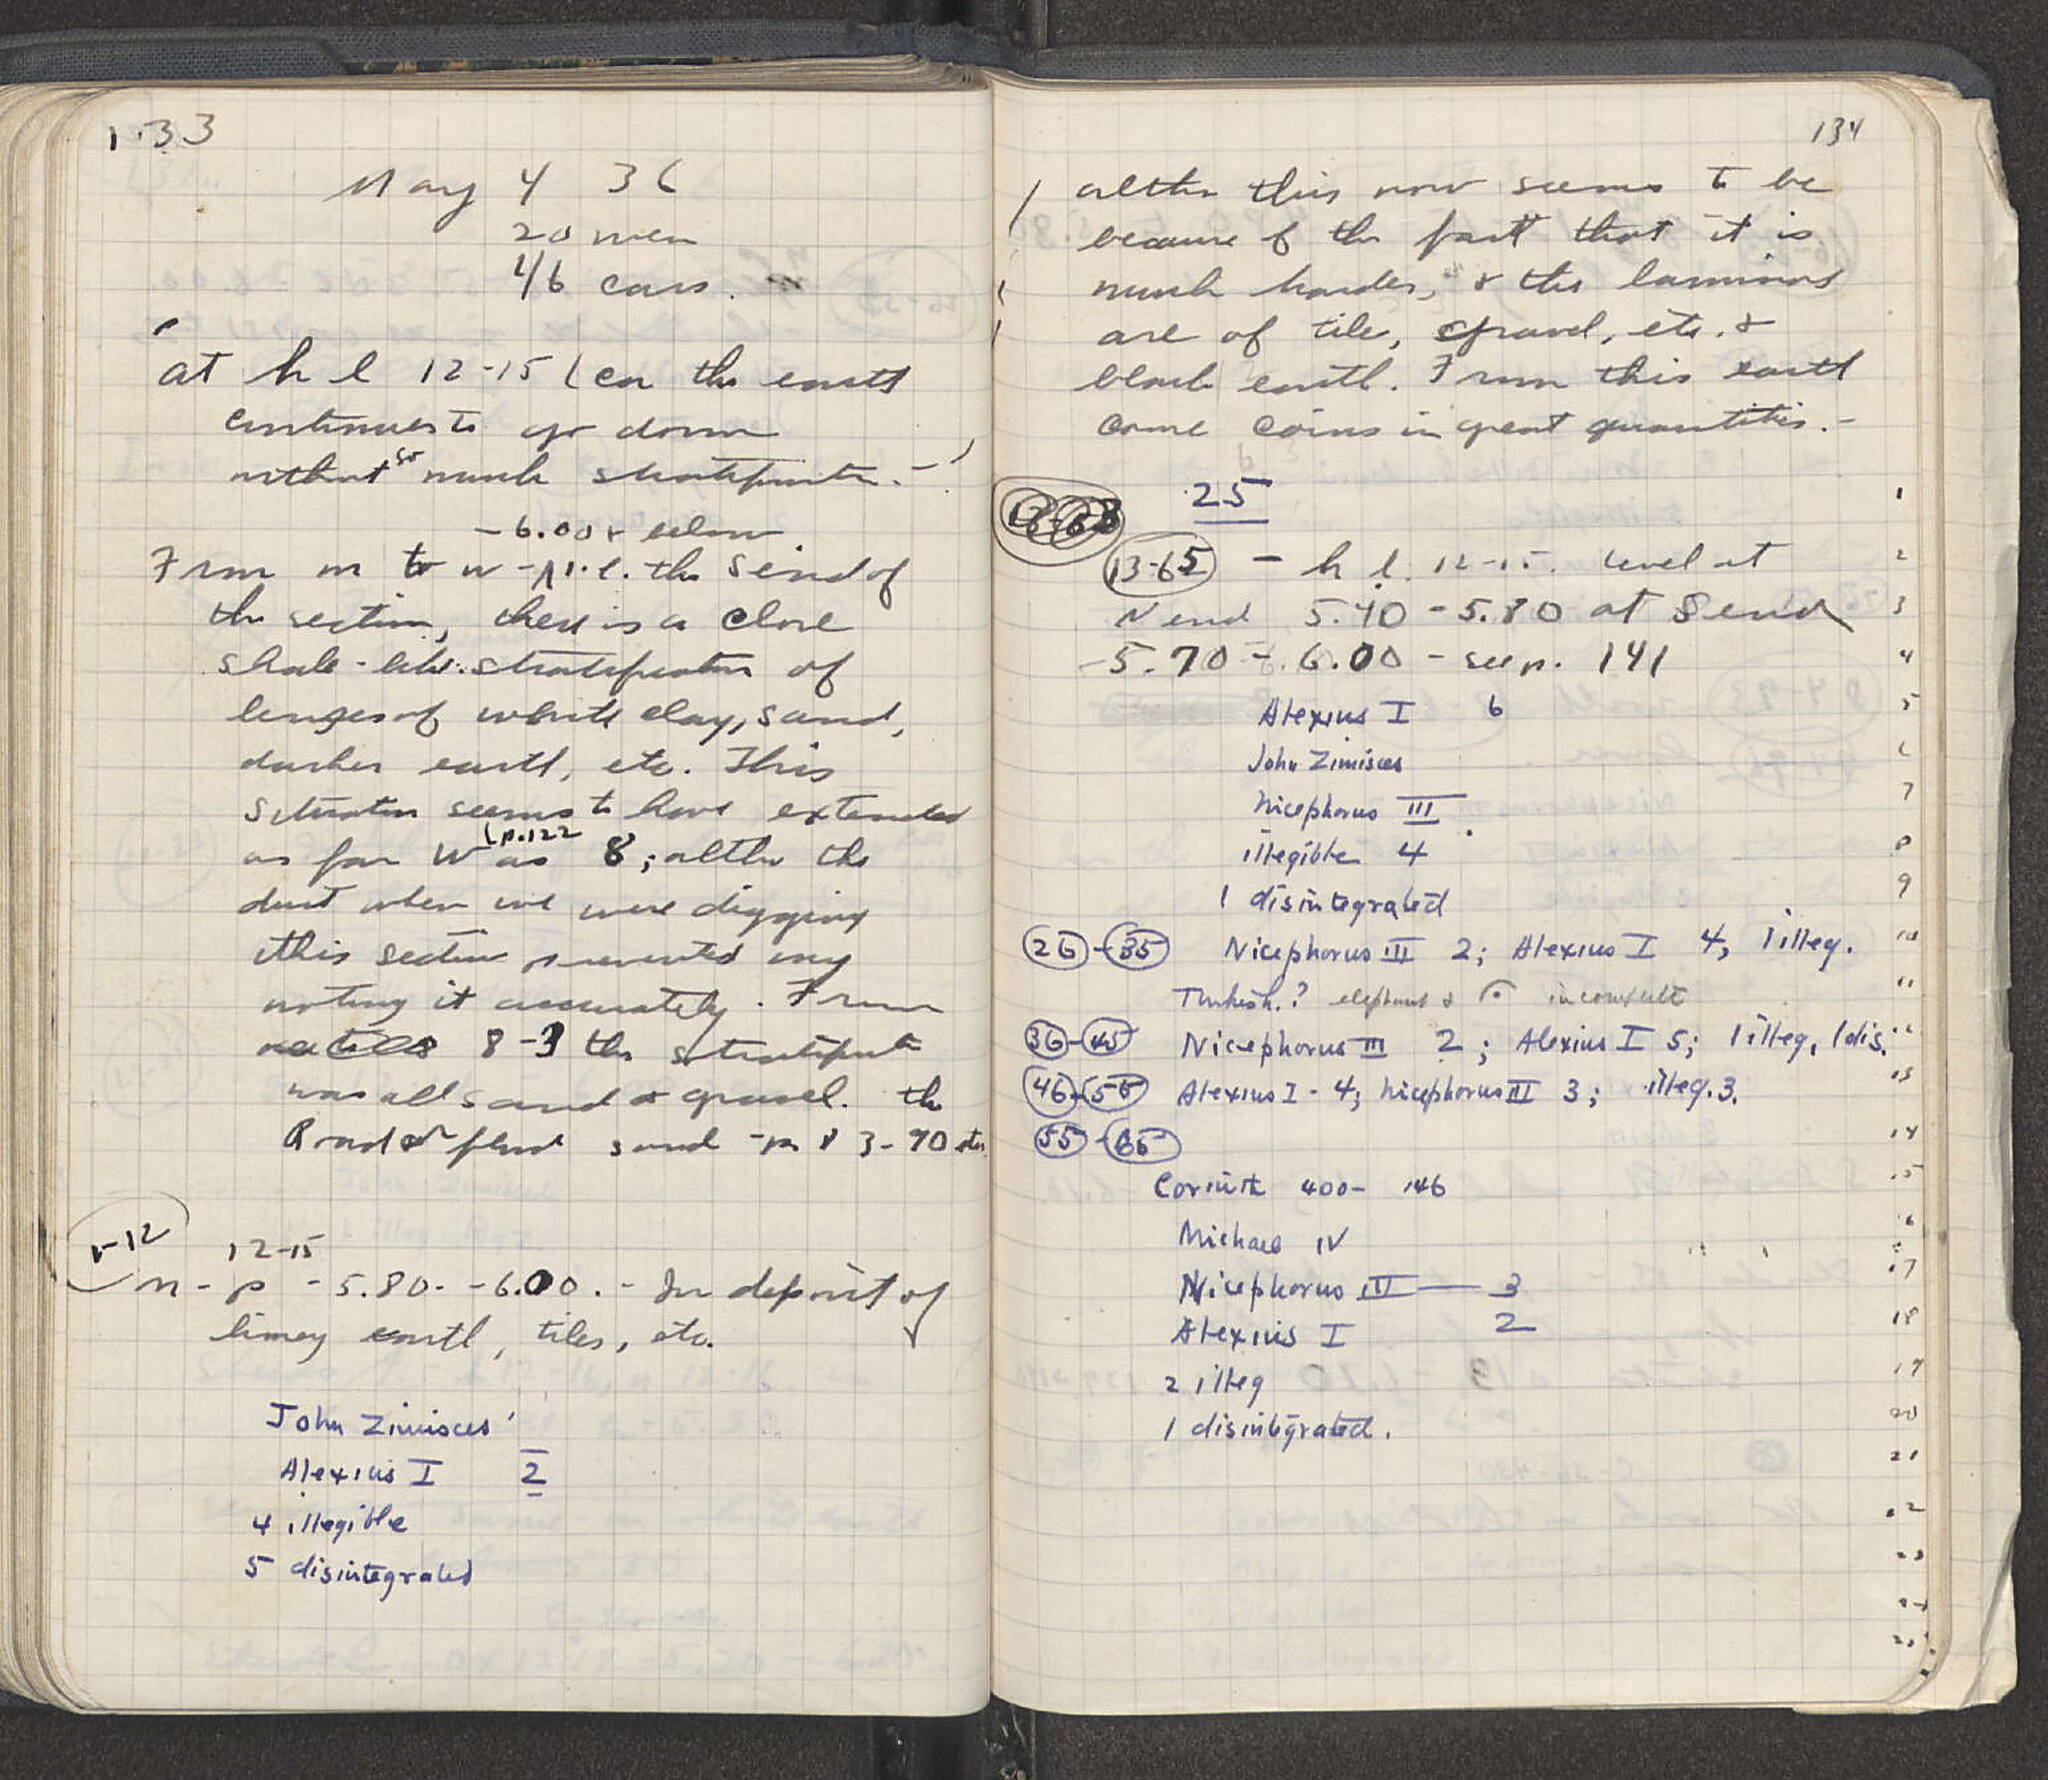 133
May 4 36
20 men
46 cars.
at h l 12-15 (ca the earth
continues to go down
without so much stratification. -
-6.00 & below
From m to w - p. i.e. the S end of
the section, there is a close
shale-like stratification of
lenses of white clay, sand,
darker earth, etc. This
situation seems to have extended
as far W as 8; altho the
(p.122
dust when we were digging
this section prevented my
noting it accurately. From
8-3 the stratification
was all sand & gravel. the
Road & sand -p 83-90
1-12
12-15
n - p - 5.80 - -6.00. - In deposit of
limey earth, tiles, etc.
John Zimisces
Alexius I 2
4 illegible
5 disintegrated
134
altho this now seems to be
because of the fact that it is
much harder, & the laminas
are of tile, gravel, etc. &
black earth. From this earth
come coins in great quantities. -
25
13-65 - h l. 12-15. Level at
N end 5.40 - 5.80 at S end
-5.70 - 6.00 - see p. 141
Alexius I 6
John Zimisces
Nicephorus III
illegible 4
1 disintegrated
26-35 Nicephorus III 2; Alexius I 4, 1 illeg.
Turkish? elephant &
36-45 Nicephorus III 2; Alexius I 5; 1 illeg, 1 dis.
46-55 Alexius I - 4; Nicephorus III 3; illeg. 3.
55-65
Corinth 400- 146
Michael IV
Nicephorus III — 3
Alexius I 2
2 illeg
1 disintegrated.
1
2
3
4
5
6
7
8
9
10
11
12
13
14
15
16
17
18
19
20
21
22
23
24
25